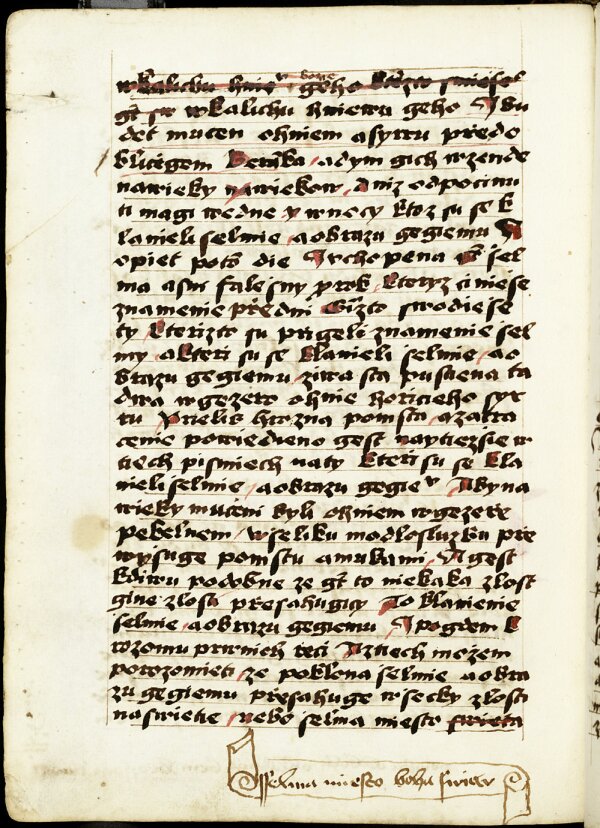 wkalichu hniew geho
gt su wkalichu hniewu geho A bu
det mucen ohniem asyru předo
blicigem Beranka adym gich wzende
nawieky wiekow Aniz odpocinu
ti magi wedne y wnocy ktoz su se k
lanieli selmie aobrazu gegiemu A
opiet poto die A chopena gt sel
ma asni falesny prok kteryz ciniese
znamenie předni Gizto swodiese
ty kterizto su prigeli znamenie sel
my akteri su se klanieli selmie ao
brazu gegiemu ziwa sta pustiena ta
dwa wgezero ohnie horicieho syr
ru Prielis hrozna pomsta azatra
cenie powiedieno gest naytiezsie w
tiech pismiech naty kteri su se kla
nieli selmie aobrazu gegieu Aby na
wieky muceni byli ohniem wgezere
pekelnem wseliku modlosluzbu pre
wysuge pomstu amukami A gest
kdiwu podobne ze gt to niekaka zlost
gine zlosti presahugicy To klanienie
selmie aobrazu gegiemu A pogdem k
rozomu prwnich reci Aztiech mozem
porozomieti ze poklona selmie aobra
zu gegiemu presahuge wsecky zlosti
naswietie nebo selma miesto swieta
sselma miesto boha swieta